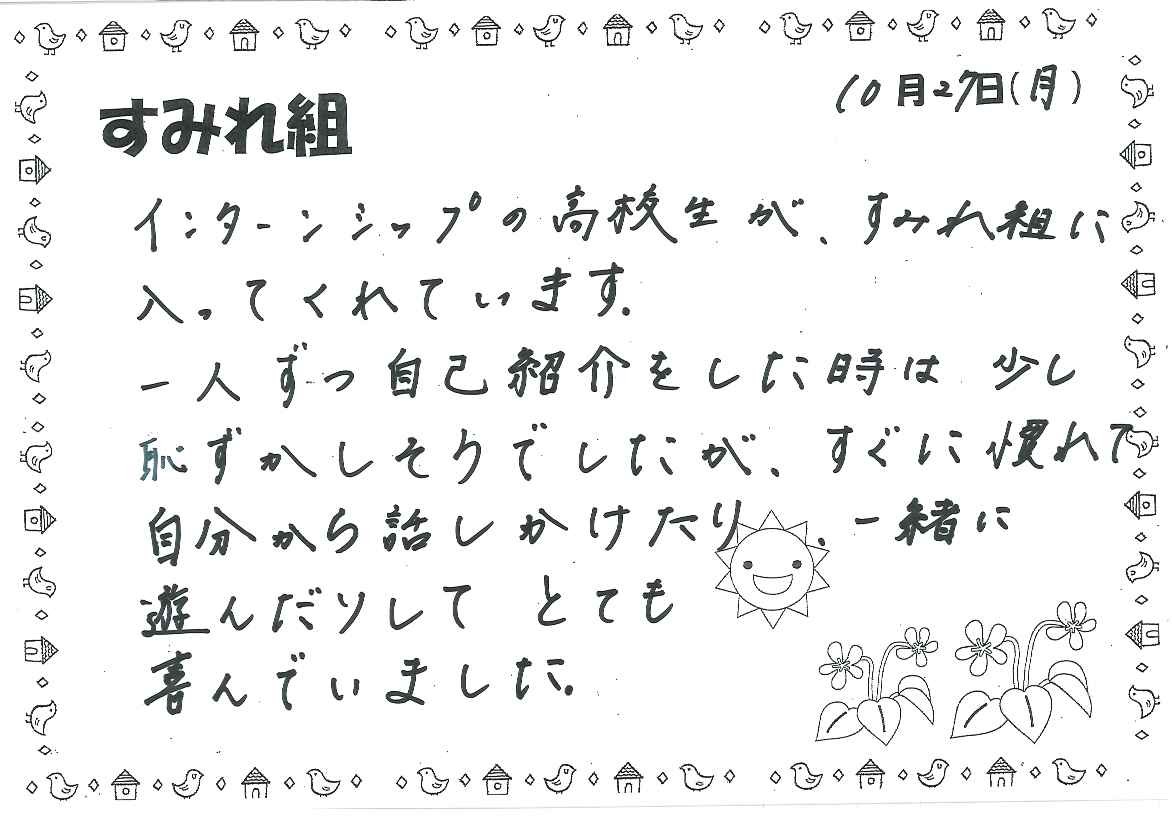 10月27日(月)
すみれ組
インターンシップの高校生が、すみれ組に
入ってくれています。
一人ずつ自己紹介をした時は 少し
恥ずかしそうでしたが、すぐに慣れて
自分から話しかけたり、一緒に
遊んだりして とても
喜んでいました。